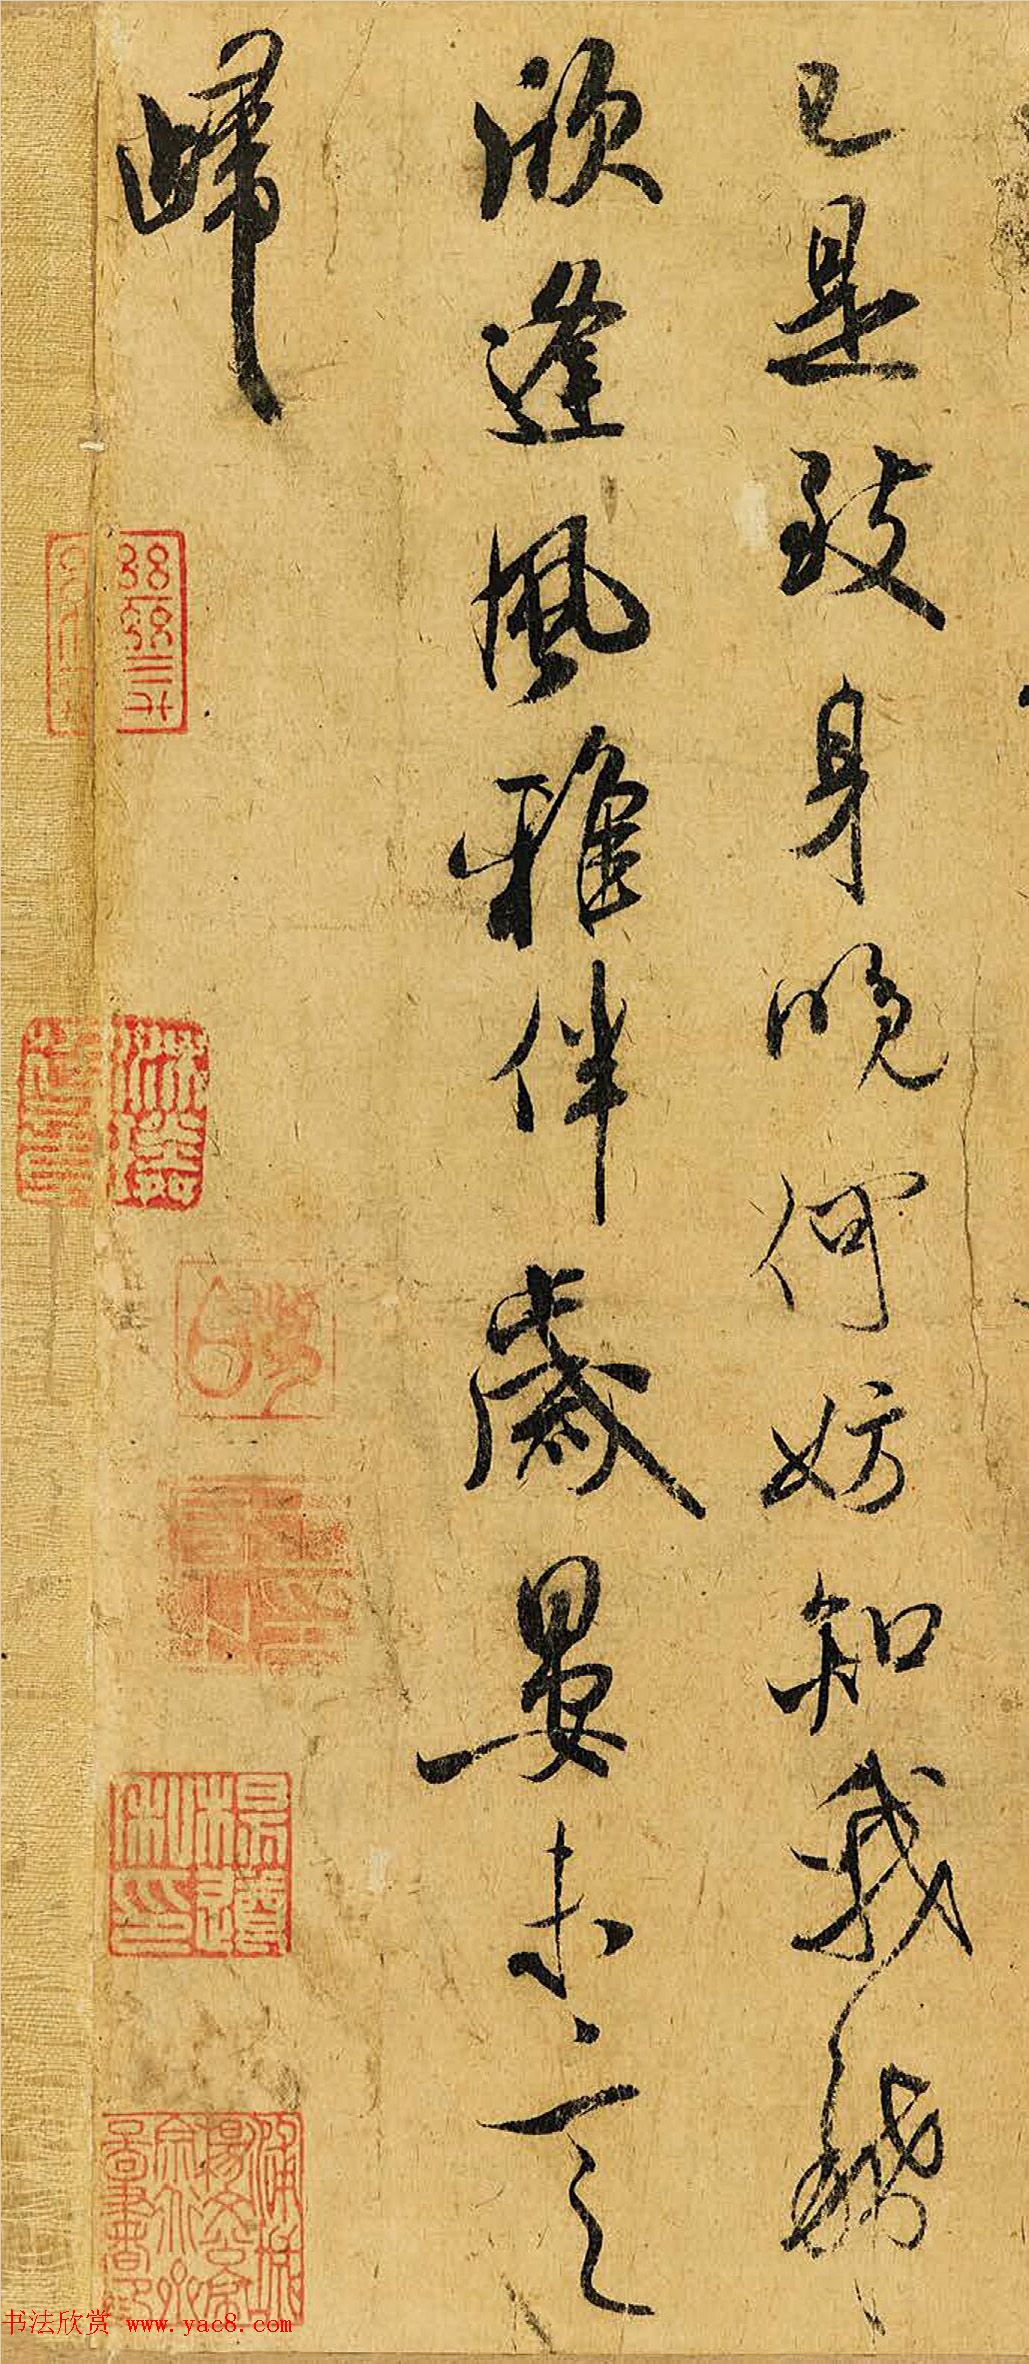 已是致身晚何妨知我稀
欣逢風雅伴歲晏未言
歸
书法欣赏 www.yac8.com